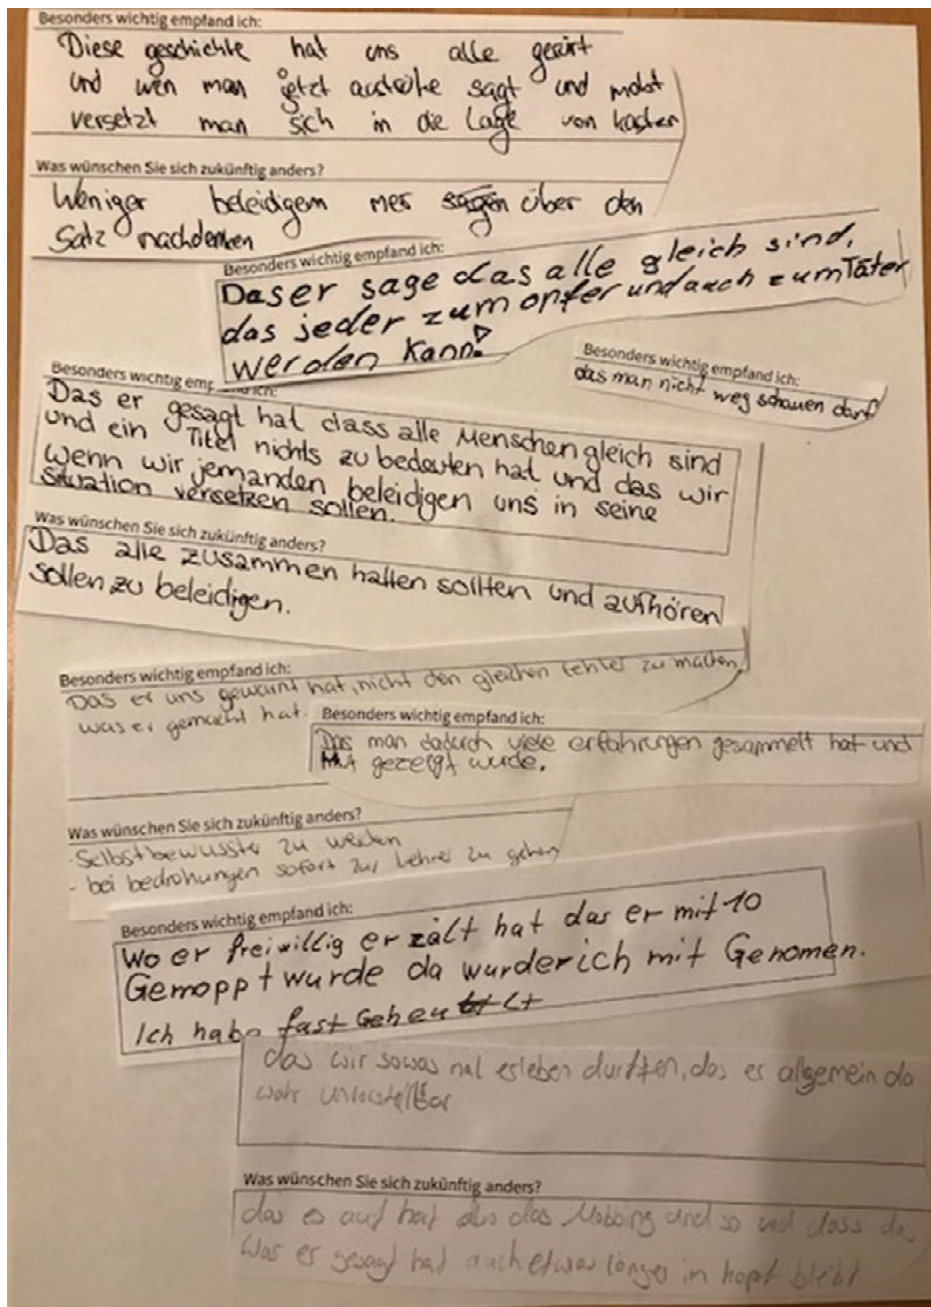 Besonders wichtig empfand ich:
Diese geschichte hat uns alle gerürt
und wen man jetzt ausdrüke sagt und mobt
versetzt man sich in die Lage von
Was wünschen Sie sich zukünftig anders?
Weniger beleidigem mer sagen über den
Satz nachdenken
Besonders wichtig empfand ich:
Das er sage das alle gleich sind,
das jeder zum opfer und auch zum Täter
werden kann!
Besonders wichtig empfand ich:
das man nicht weg schauen darf
Besonders wichtig emp
Das er gesagt hat dass alle Menschen gleich sind
und ein Titel nichts zu bedeuten hat und das wir
wenn wir jemanden beleidigen uns in seine
situation versetzen sollen.
Was wünschen Sie sich zukünftig anders?
Das alle zusammen halten sollten und aufhören
sollen zu beleidigen.
Besonders wichtig empfand ich:
Das er uns gewarnt hat, nicht den gleichen Fehler zu machen,
was er gemacht hat.
Besonders wichtig empfand ich:
Das man dadurch viele erfahrungen gesammelt hat und
Mut gezeigt wurde.
Was wünschen Sie sich zukünftig anders?
- Selbstbewusster zu werden
- bei bedrohungen sofort zur Lehrer zu gehen
Besonders wichtig empfand ich:
Wo er freiwillig erzält hat das er mit 10
Gemoppt wurde da wurder ich mit Genomen.
Ich habe fast Geheult
das wir sowas mal erleben durften, das er allgemein da
wahr unvorstellbar
Was wünschen Sie sich zukünftig anders?
das es auf hört also das Mobbing und so und dass das
was er gesagt hat auch etwas länger im kopf bleibt